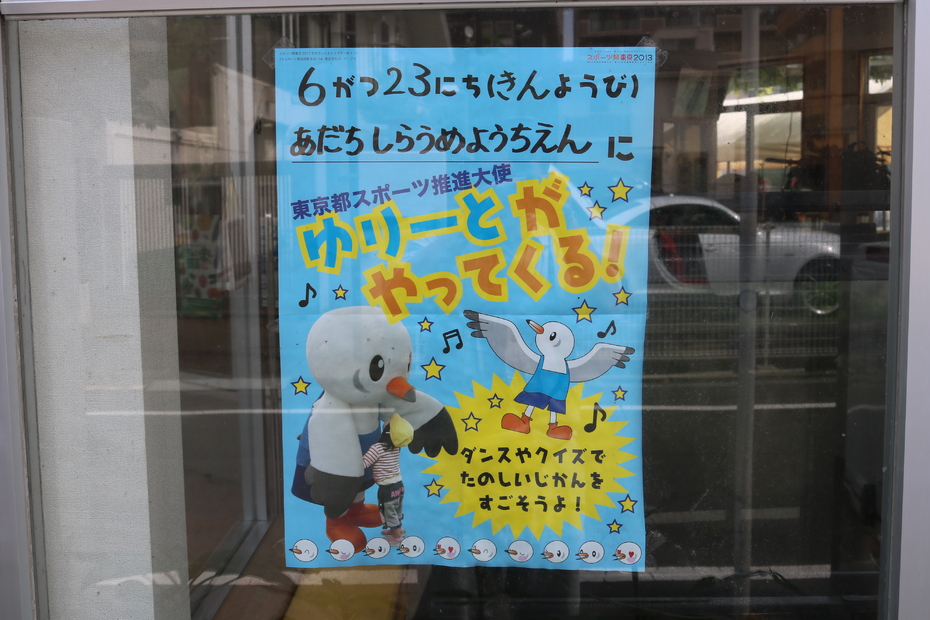 スポーツ祭東京2013
6がつ23にち(きんようび)
あだちしらうめようちえん に
東京都スポーツ推進大使
ゆりーとが
やってくる!
ダンスやクイズで
たのしいじかんを
すごそうよ!